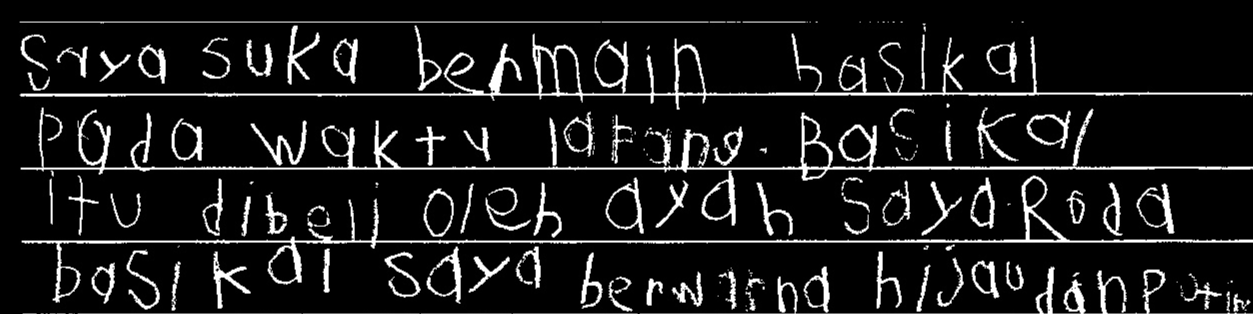 Saya suka bermain basikal
Pada waktu latang. Basikal
itu dibeli oleh ayah saya. Roda
basikal saya berwarna hijau dan Putih